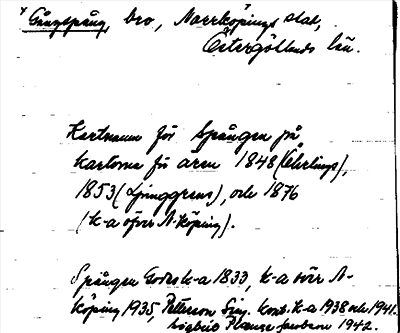 Gångspång, bro, Norrköpings stad,
Östergötlands län.
Kartnamn för Spången på
kartorna för åren 1848 (Öhrlings),
1853 (Ljunggrens), och 1876
(k-a öfver N-köping).
Spången Godes k-a 1833, k-a över N-
köping 1935, Petterson Sing. kont. k-a 1938 och 1941.
1942.